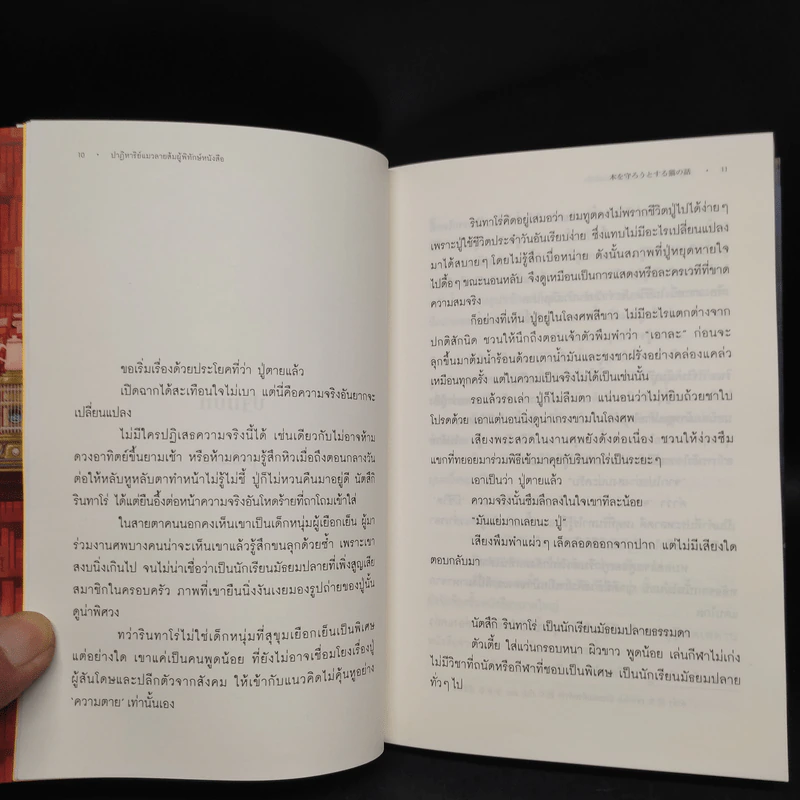 10 • ปาฏิหาริย์แมวลายส้มผู้พิทักษ์หนังสือ
ขอเริ่มเรื่องด้วยประโยคที่ว่า ปู่ตายแล้ว
เปิดฉากได้สะเทือนใจไม่เบา แต่นี่คือความจริงอันยากจะ
เปลี่ยนแปลง
ไม่มีใครปฏิเสธความจริงนี้ได้ เช่นเดียวกับไม่อาจห้าม
ดวงอาทิตย์ขึ้นยามเช้า หรือห้ามความรู้สึกหิวเมื่อถึงตอนกลางวัน
ต่อให้หลับหูหลับตาทำหน้าไม่รู้ไม่ชี้ ปู่ก็ไม่หวนคืนมาอยู่ดี นัตสึกิ
รินทาโร่ ได้แต่ยืนอึ้งต่อหน้าความจริงอันโหดร้ายที่ถาโถมเข้าใส่
ในสายตาคนนอกคงเห็นเขาเป็นเด็กหนุ่มผู้เยือกเย็น ผู้มา
ร่วมงานศพบางคนน่าจะเห็นเขาแล้วรู้สึกขนลุกด้วยซ้ำ เพราะเขา
สงบนิ่งเกินไป จนไม่น่าเชื่อว่าเป็นนักเรียนมัธยมปลายที่เพิ่งสูญเสีย
สมาชิกในครอบครัว ภาพที่เขายืนนิ่งงันเงยมองรูปถ่ายของปู่นั้น
ดูน่าพิศวง
ทว่ารินทาโร่ไม่ใช่เด็กหนุ่มที่สุขุมเยือกเย็นเป็นพิเศษ
แต่อย่างใด เขาแค่เป็นคนพูดน้อย ที่ยังไม่อาจเชื่อมโยงเรื่องปู่
ผู้สันโดษและปลีกตัวจากสังคม ให้เข้ากับแนวคิดไม่คุ้นหูอย่าง
'ความตาย' เท่านั้นเอง
本を守ろうとする猫の話 • 11
รินทาโร่คิดอยู่เสมอว่า ยมทูตคงไม่พรากชีวิตปู่ไปได้ง่ายๆ
เพราะปู่ใช้ชีวิตประจำวันอันเรียบง่าย ซึ่งแทบไม่มีอะไรเปลี่ยนแปลง
มาได้สบายๆ โดยไม่รู้สึกเบื่อหน่าย ดังนั้นสภาพที่ปู่หยุดหายใจ
ไปดื้อๆ ขณะนอนหลับ จึงดูเหมือนเป็นการแสดงหรือละครเวทีที่ขาด
ความสมจริง
ก็อย่างที่เห็น ปู่อยู่ในโลงศพสีขาว ไม่มีอะไรแตกต่างจาก
ปกติสักนิด ชวนให้นึกถึงตอนเจ้าตัวพึมพำว่า "เอาละ" ก่อนจะ
ลุกขึ้นมาต้มน้ำร้อนด้วยเตาน้ำมันและชงชาฝรั่งอย่างคล่องแคล่ว
เหมือนทุกครั้ง แต่ในความเป็นจริงไม่ได้เป็นเช่นนั้น
รอแล้วรอเล่า ปู่ก็ไม่ลืมตา แน่นอนว่าไม่หยิบถ้วยชาใบ
โปรดด้วย เอาแต่นอนนิ่งดูน่าเกรงขามในโลงศพ
เสียงพระสวดในงานศพยังดังต่อเนื่อง ชวนให้ง่วงซึม
แขกที่ทยอยมาร่วมพิธีเข้ามาคุยกับรินทาโร่เป็นระยะๆ
เอาเป็นว่า ปู่ตายแล้ว
ความจริงนั้นซึมลึกลงในใจเขาทีละน้อย
"มันแย่มากเลยนะ ปู่"
เสียงพึมพำแผ่วๆ เล็ดลอดออกจากปาก แต่ไม่มีเสียงใด
ตอบกลับมา
นัตสึกิ รินทาโร่ เป็นนักเรียนมัธยมปลายธรรมดา
ตัวเตี้ย ใส่แว่นกรอบหนา ผิวขาว พูดน้อย เล่นกีฬาไม่เก่ง
ไม่มีวิชาที่ถนัดหรือกีฬาที่ชอบเป็นพิเศษ เป็นนักเรียนมัธยมปลาย
ทั่วๆ ไป